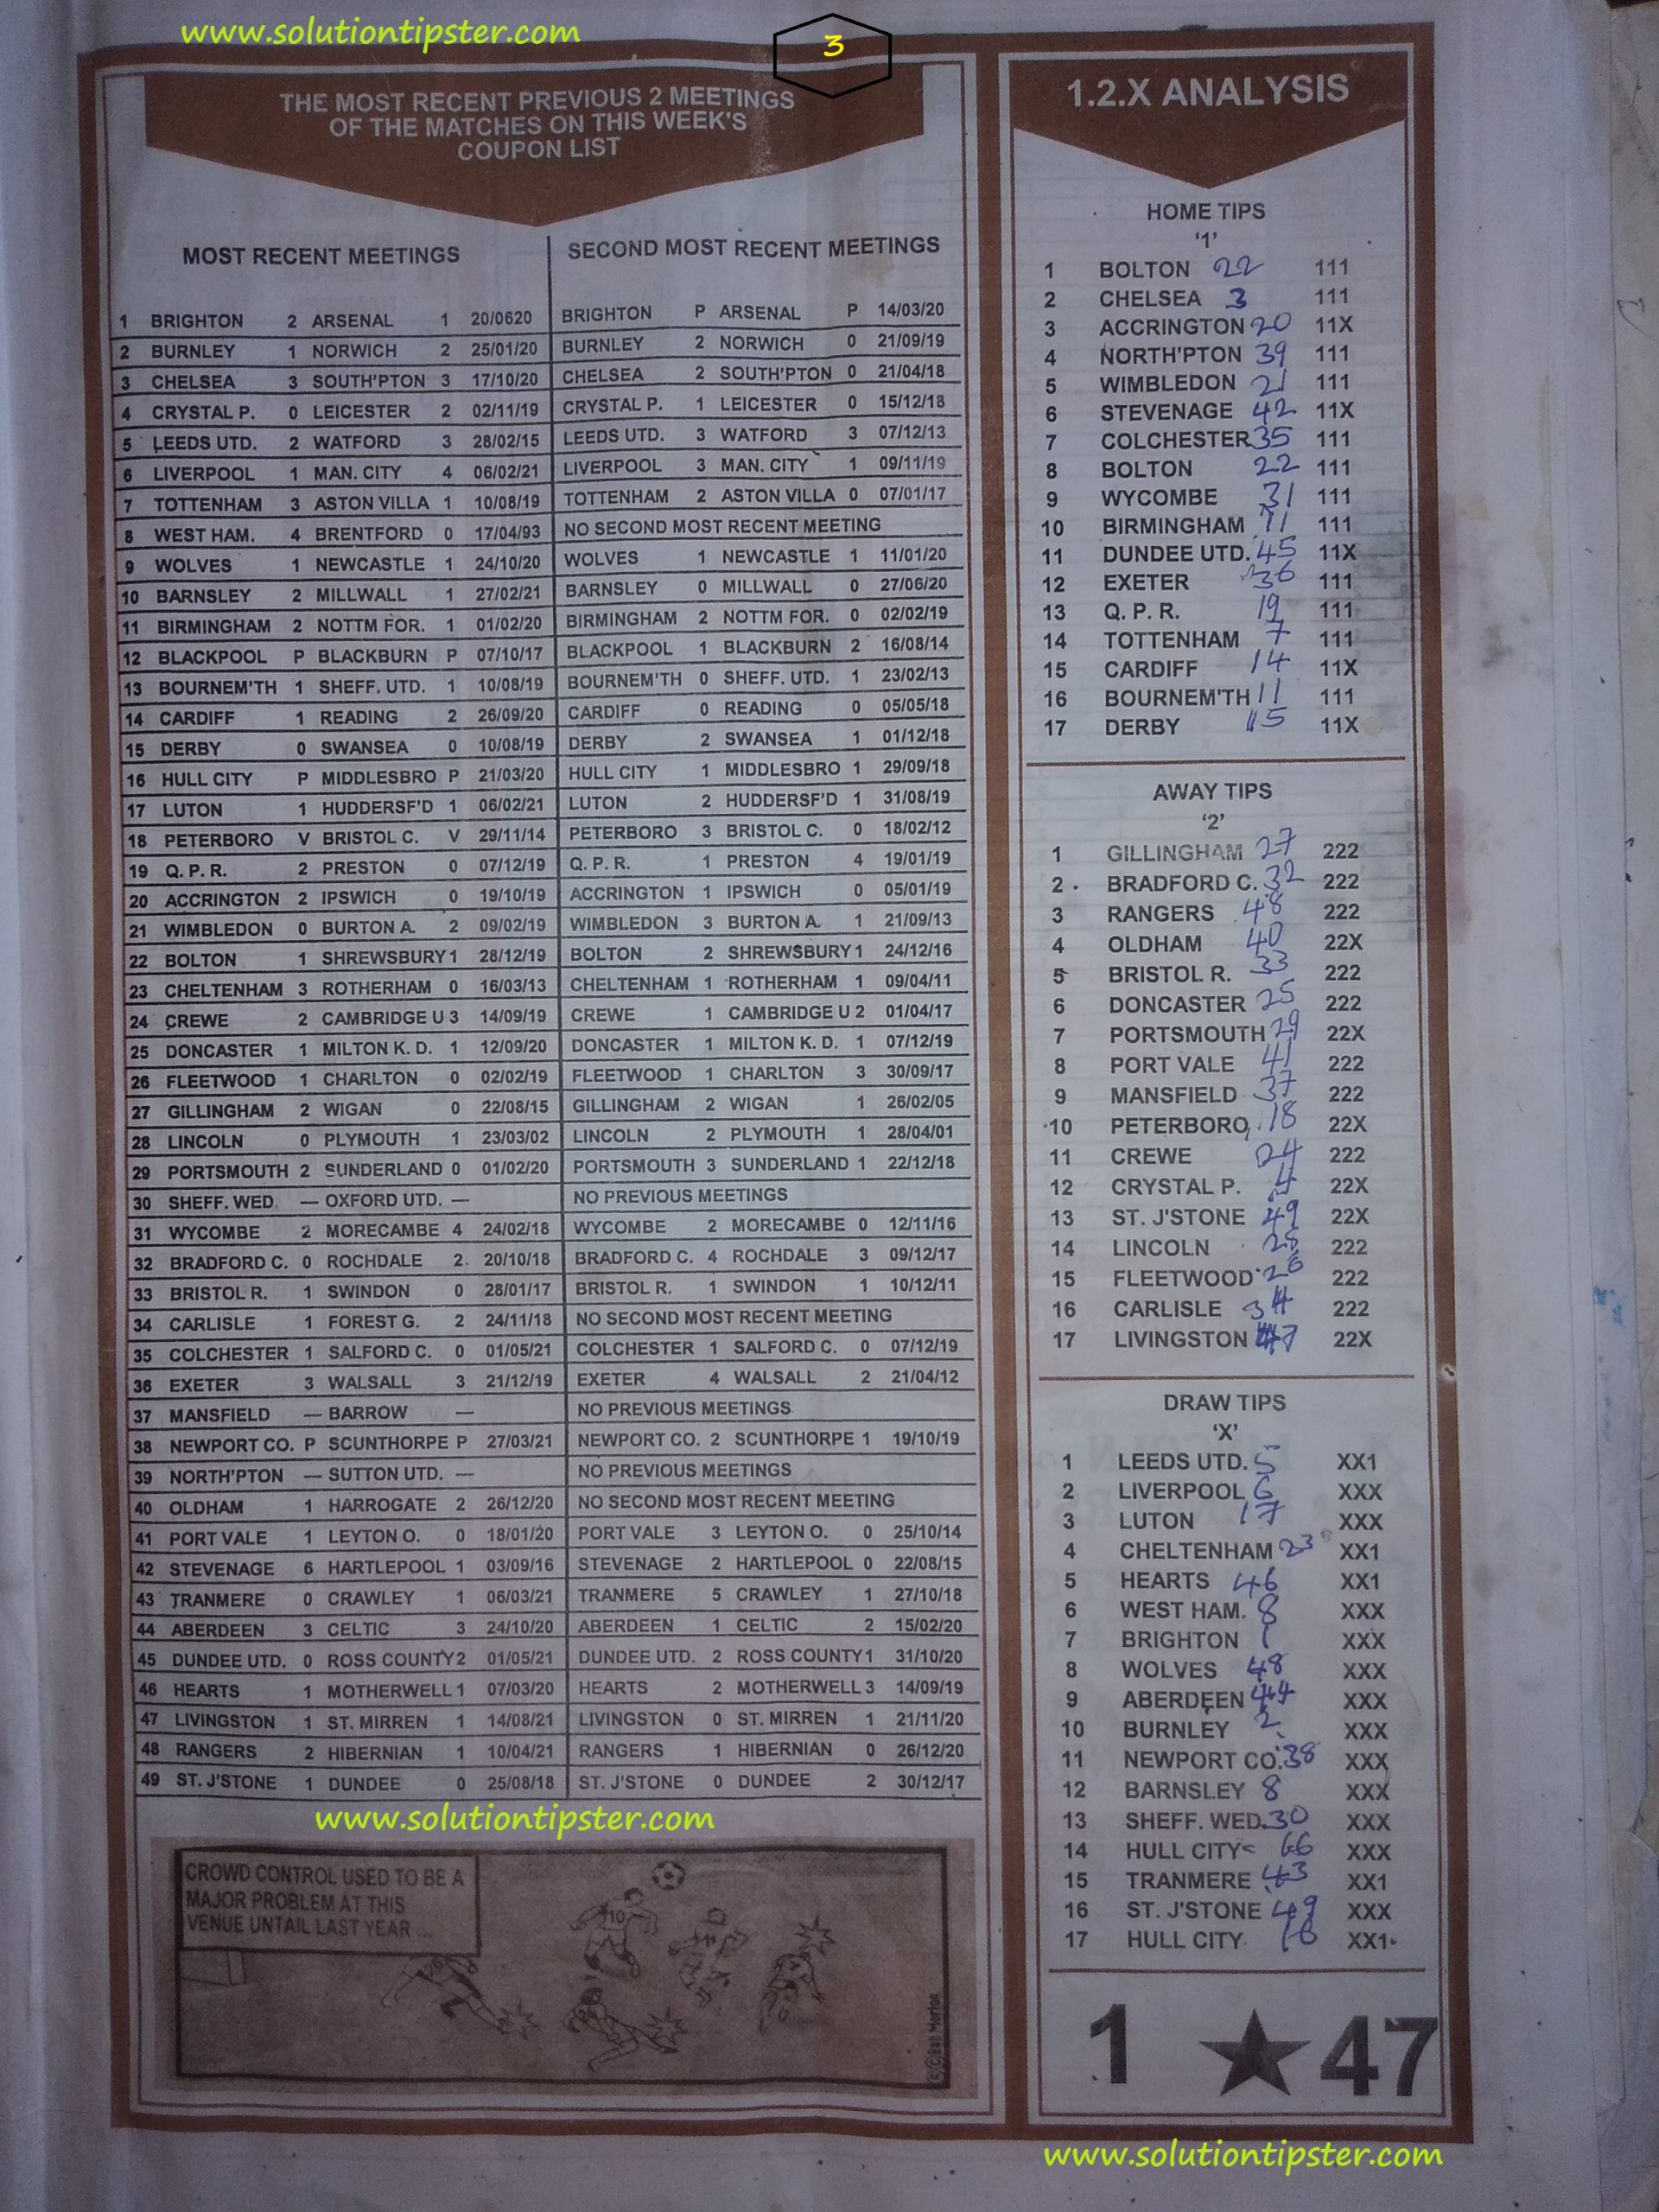 www.solutiontipster.com
3
THE MOST RECENT PREVIOUS 2 MEETINGS
OF THE MATCHES ON THIS WEEK'S
COUPON LIST
MOST RECENT MEETINGS SECOND MOST RECENT MEETINGS
1 BRIGHTON 2 ARSENAL 1 20/0620 BRIGHTON P ARSENAL P 14/03/20
2 BURNLEY 1 NORWICH 2 25/01/20 BURNLEY 2 NORWICH 0 21/09/19
3 CHELSEA 3 SOUTH'PTON 3 17/10/20 CHELSEA 2 SOUTH'PTON 0 21/04/18
4 CRYSTAL P. 0 LEICESTER 2 02/11/19 CRYSTAL P. 1 LEICESTER 0 15/12/18
5 LEEDS UTD. 2 WATFORD 3 28/02/15 LEEDS UTD. 3 WATFORD 3 07/12/13
6 LIVERPOOL 1 MAN. CITY 4 06/02/21 LIVERPOOL 3 MAN. CITY 1 09/11/19
7 TOTTENHAM 3 ASTON VILLA 1 10/08/19 TOTTENHAM 2 ASTON VILLA 0 07/01/17
8 WEST HAM. 4 BRENTFORD 0 17/04/93 NO SECOND MOST RECENT MEETING
9 WOLVES 1 NEWCASTLE 1 24/10/20 WOLVES 1 NEWCASTLE 1 11/01/20
10 BARNSLEY 2 MILLWALL 1 27/02/21 BARNSLEY 0 MILLWALL 0 27/06/20
11 BIRMINGHAM 2 NOTTM FOR. 1 01/02/20 BIRMINGHAM 2 NOTTM FOR. 0 02/02/19
12 BLACKPOOL P BLACKBURN P 07/10/17 BLACKPOOL 1 BLACKBURN 2 16/08/14
13 BOURNEM'TH 1 SHEFF. UTD. 1 10/08/19 BOURNEM'TH 0 SHEFF. UTD. 1 23/02/13
14 CARDIFF 1 READING 2 26/09/20 CARDIFF 0 READING 0 05/05/18
15 DERBY 0 SWANSEA 0 10/08/19 DERBY 2 SWANSEA 1 01/12/18
16 HULL CITY P MIDDLESBRO P 21/03/20 HULL CITY 1 MIDDLESBRO 1 29/09/18
17 LUTON 1 HUDDERSF'D 1 06/02/21 LUTON 2 HUDDERSF'D 1 31/08/19
18 PETERBORO V BRISTOL C. V 29/11/14 PETERBORO 3 BRISTOL C. 0 18/02/12
19 Q. P. R. 2 PRESTON 0 07/12/19 Q. P. R. 1 PRESTON 4 19/01/19
20 ACCRINGTON 2 IPSWICH 0 19/10/19 ACCRINGTON 1 IPSWICH 0 05/01/19
21 WIMBLEDON 0 BURTON A. 2 09/02/19 WIMBLEDON 3 BURTON A. 1 21/09/13
22 BOLTON 1 SHREWSBURY 1 28/12/19 BOLTON 2 SHREWSBURY 1 24/12/16
23 CHELTENHAM 3 ROTHERHAM 0 16/03/13 CHELTENHAM 1 ROTHERHAM 1 09/04/11
24 CREWE 2 CAMBRIDGE U 3 14/09/19 CREWE 1 CAMBRIDGE U 2 01/04/17
25 DONCASTER 1 MILTON K. D. 1 12/09/20 DONCASTER 1 MILTON K. D. 1 07/12/19
26 FLEETWOOD 1 CHARLTON 0 02/02/19 FLEETWOOD 1 CHARLTON 3 30/09/17
27 GILLINGHAM 2 WIGAN 0 22/08/15 GILLINGHAM 2 WIGAN 1 26/02/05
28 LINCOLN 0 PLYMOUTH 1 23/03/02 LINCOLN 2 PLYMOUTH 1 28/04/01
29 PORTSMOUTH 2 SUNDERLAND 0 01/02/20 PORTSMOUTH 3 SUNDERLAND 1 22/12/18
30 SHEFF. WED. — OXFORD UTD. — NO PREVIOUS MEETINGS
31 WYCOMBE 2 MORECAMBE 4 24/02/18 WYCOMBE 2 MORECAMBE 0 12/11/16
32 BRADFORD C. 0 ROCHDALE 2. 20/10/18 BRADFORD C. 4 ROCHDALE 3 09/12/17
33 BRISTOL R. 1 SWINDON 0 28/01/17 BRISTOL R. 1 SWINDON 1 10/12/11
34 CARLISLE 1 FOREST G. 2 24/11/18 NO SECOND MOST RECENT MEETING
35 COLCHESTER 1 SALFORD C. 0 01/05/21 COLCHESTER 1 SALFORD C. 0 07/12/19
36 EXETER 3 WALSALL 3 21/12/19 EXETER 4 WALSALL 2 21/04/12
37 MANSFIELD — BARROW — NO PREVIOUS MEETINGS
38 NEWPORT CO. P SCUNTHORPE P 27/03/21 NEWPORT CO. 2 SCUNTHORPE 1 19/10/19
39 NORTH'PTON — SUTTON UTD. — NO PREVIOUS MEETINGS
40 OLDHAM 1 HARROGATE 2 26/12/20 NO SECOND MOST RECENT MEETING
41 PORT VALE 1 LEYTON O. 0 18/01/20 PORT VALE 3 LEYTON O. 0 25/10/14
42 STEVENAGE 6 HARTLEPOOL 1 03/09/16 STEVENAGE 2 HARTLEPOOL 0 22/08/15
43 TRANMERE 0 CRAWLEY 1 06/03/21 TRANMERE 5 CRAWLEY 1 27/10/18
44 ABERDEEN 3 CELTIC 3 24/10/20 ABERDEEN 1 CELTIC 2 15/02/20
45 DUNDEE UTD. 0 ROSS COUNTY 2 01/05/21 DUNDEE UTD. 2 ROSS COUNTY 1 31/10/20
46 HEARTS 1 MOTHERWELL 1 07/03/20 HEARTS 2 MOTHERWELL 3 14/09/19
47 LIVINGSTON 1 ST. MIRREN 1 14/08/21 LIVINGSTON 0 ST. MIRREN 1 21/11/20
48 RANGERS 2 HIBERNIAN 1 10/04/21 RANGERS 1 HIBERNIAN 0 26/12/20
49 ST. J'STONE 1 DUNDEE 0 25/08/18 ST. J'STONE 0 DUNDEE 2 30/12/17
www.solutiontipster.com
CROWD CONTROL USED TO BE A
MAJOR PROBLEM AT THIS
VENUE UNTAIL LAST YEAR ...
10
1.2.X ANALYSIS
HOME TIPS
'1'
1 BOLTON 22 111
2 CHELSEA 3 111
3 ACCRINGTON 20 11X
4 NORTH'PTON 39 111
5 WIMBLEDON 21 111
6 STEVENAGE 42 11X
7 COLCHESTER 35 111
8 BOLTON 22 111
9 WYCOMBE 31 111
10 BIRMINGHAM 11 111
11 DUNDEE UTD. 45 11X
12 EXETER 36 111
13 Q. P. R. 19 111
14 TOTTENHAM 7 111
15 CARDIFF 14 11X
16 BOURNEM'TH 11 111
17 DERBY 15 11X
AWAY TIPS
'2'
1 GILLINGHAM 27 222
2 . BRADFORD C. 32 222
3 RANGERS 48 222
4 OLDHAM 40 22X
5 BRISTOL R. 33 222
6 DONCASTER 25 222
7 PORTSMOUTH 29 22X
8 PORT VALE 41 222
9 MANSFIELD 37 222
10 PETERBORO 18 22X
11 CREWE 24 222
12 CRYSTAL P. 4 22X
13 ST. J'STONE 49 22X
14 LINCOLN 28 222
15 FLEETWOOD 26 222
16 CARLISLE 34 222
17 LIVINGSTON 47 22X
DRAW TIPS
'X'
1 LEEDS UTD. 5 XX1
2 LIVERPOOL 6 XXX
3 LUTON 17 XXX
4 CHELTENHAM 23 XX1
5 HEARTS 46 XX1
6 WEST HAM. 8 XXX
7 BRIGHTON 1 XXX
8 WOLVES 48 XXX
9 ABERDEEN 44 XXX
10 BURNLEY 2 XXX
11 NEWPORT CO. 38 XXX
12 BARNSLEY 8 XXX
13 SHEFF. WED. 30 XXX
14 HULL CITY 66 XXX
15 TRANMERE 43 XX1
16 ST. J'STONE 49 XXX
17 HULL CITY 16 XX1
1 ★ 47
www.solutiontipster.com